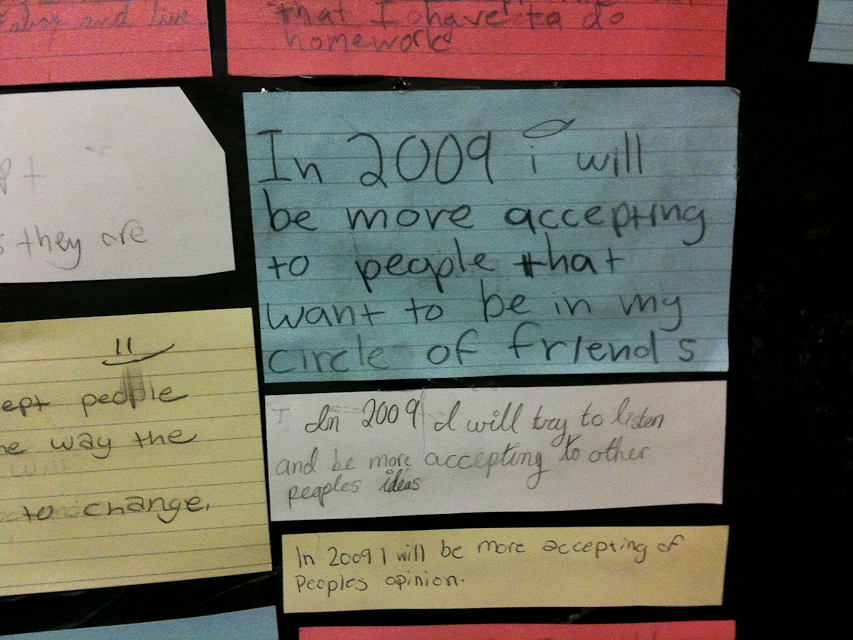 and live
that I have to do
homework
they are
In 2009 i will
be more accepting
to people that
want to be in my
circle of friends
ept people
way the
to change.
In 2009 I will try to listen
and be more accepting to other
peoples ideas
In 2009 I will be more accepting of
Peoples opinion.